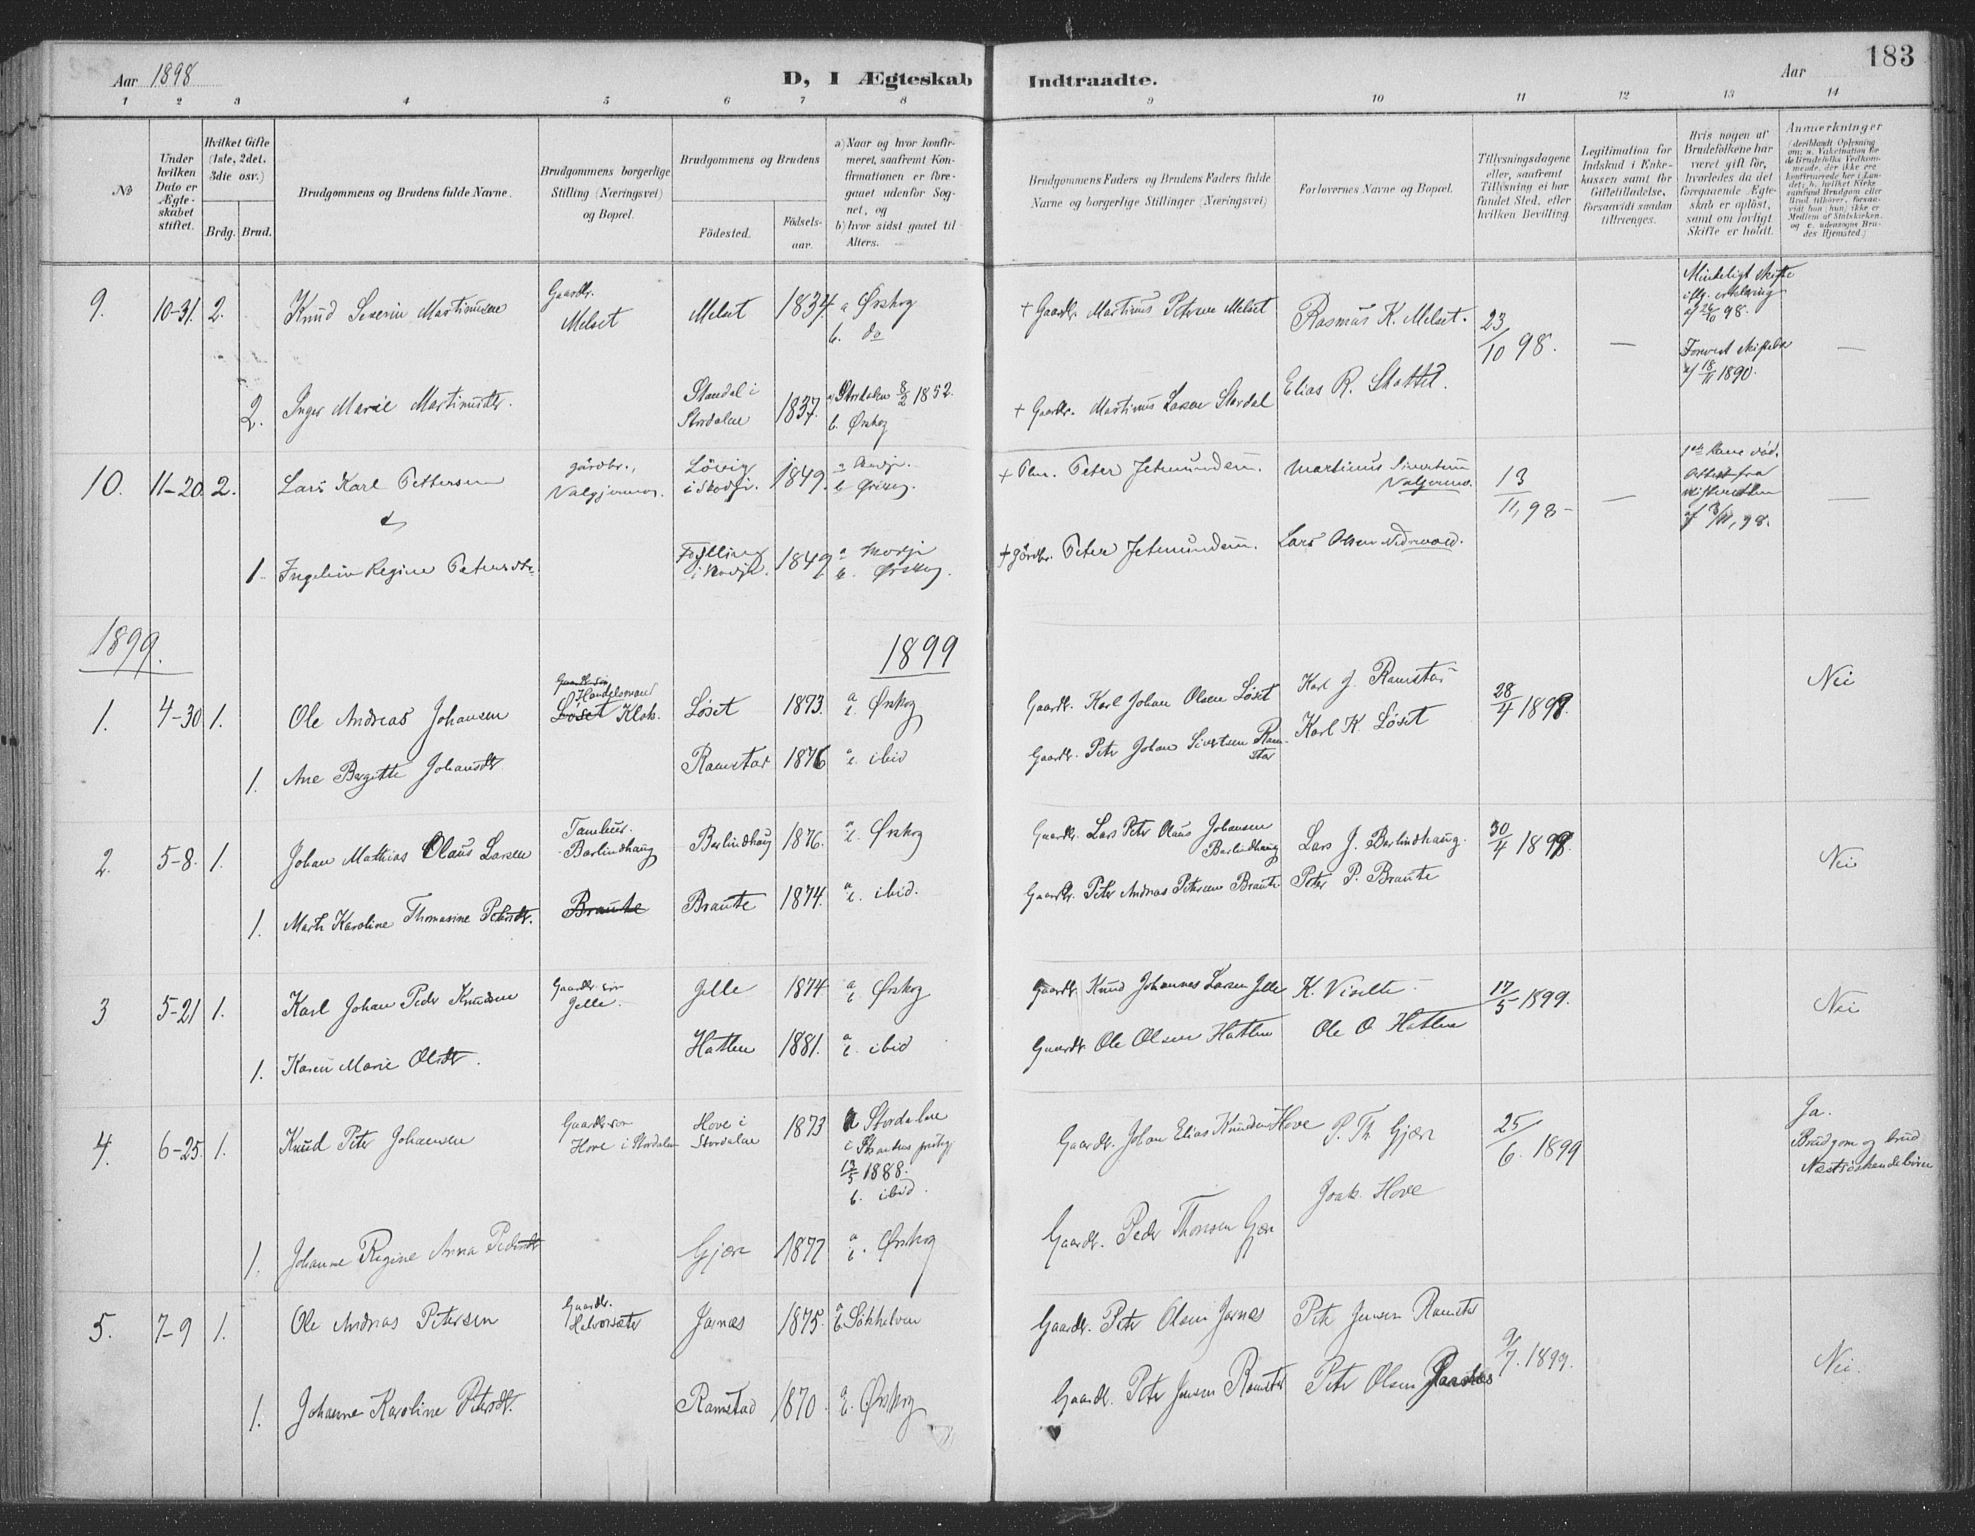 183
Aar 1898
D, I Ægteskab Indtraadte.
Aar
1 2 3 4 5 6 7 8 9 10 11 12 13 14
No
Under hvilken Dato er Ægteskabet stiftet.
Hvilket Gifte (1ste, 2det. 3die osv.)
Brdg. Brud.
Brudgommens og Brudens fulde Navne.
Brudgommens borgerlige Stilling (Næringsvei) og Bopæl.
Brudgommens og Brudens
Fødested.
Fødselsaar.
a) Naar og hvor konfirmeret, saafremt Konfirmationen er foregaaet udenfor Sognet, og
b) hvor sidst gaaet til Alters.
Brudgommens Faders og Brudens Faders fulde Navne og borgerlige Stillinger (Næringsvei)
Forlovernes Navne og Bopæl.
Tillysningsdagene eller, saafremt Tillysning ei har fundet Sted, efter hvilken Bevilling.
Legitimation for Indskud i Enkekassen samt for Giftetilladelse, forsaavidt saadan tiltrænges.
Hvis nogen af Brudefolkene har været gift før, hvorledes da det foregaaende Ægteskab er opløst, samt om lovligt Skifte er holdt.
Anmærkninger
9. 10-31. 2. Knud Severin Martinusen Gaardbr. Melset Melset 1834 a Ørskog b. do + Gaardbr. Martinus Petersen Melset Rasmus K. Melset. 23/10 98. — Mindeligt Skifte ifg. erklæring af 26/10 98. —
2. Inger Marie Martinusdtr. Stordal i Stordalen 1837. a Stordalen 8/2 1852. b. Ørskog + Gaardbr. Martinus Larsen Stordal Elias R. 18/11 1890.
10. 11-20. 2. Lars Karl Pettersen gårdbr., Løvig i Skodje. 1849. a Skodje. b Ørskog. + Peter Jetmundsen. Martinus Sivertsen 13/11, 98 — —
&
1. Ingeline Regine Petersdtr. Fylling i Skodje. 1849 a Skodje b. Ørskog. + gårdbr. Peter Jetmundsen. Lars Olsen Nedrevold.
1899. 1899
1. 4-30 1. Ole Andreas Johansen Gaardbr. søn Handelsmand Løset Klok. Løset 1873. a b. Ørskog Gaardbr. Karl Johan Olsen Løset Karl J. Ramstad 28/4 1899. Nei
1. Ane Bergitte Johansdtr. Ramstad 1876 a b. ibid Gaardbr. Peter Johan Sivertsen Ramstad Karl K. Løset
2. 5-8. 1. Johan Mathias Olaus Larsen Tambur. Barlindhaug Barlindhaug 1876. a b. Ørskog Gaardbr. Lars Peter Olaus Johansen Barlindhaug Lars J. Barlindhaug. 30/4 1899. Nei
1. Marth Karoline Thomasine Petersdtr. Braute Braute 1874. a b. ibid. Gaardbr. Peter Andreas Petersen Braute Peter P. Braute
3 5-21 1. Karl Johan Peder Knudsen Gaardbr. søn Jelle. Jelle 1874 a b. Ørskog Gaardbr. Knud Johannes Larsen Jelle K. Viselte 17/5 1899. Nei
1. Karen Marie Olsdtr. Hatlen 1881. a b. ibid Gaardbr. Ole Olsen Hatlen Ole O. Hatlen
4. 6-25. 1. Knud Peter Johansen Gaardbr. søn Hove i Stordalen Hove i Stordalen 1873 a Stordalen i Strandens prstgj 13/5 1888. b. ibid. Gaardbr. Johan Elias Knudsen Hove P. Th. Gjære 25/6. 1899 Ja. Brudgom og brud Næstsøskendebørn
1. Johanne Regine Anna Pedersdtr. Gjære 1877 a b. Ørskog Gaardbr. Peder Thomsen Gjære Joak. Hove
5. 7-9 1. Ole Andreas Petersen Gaardbr. Helvorsæter Jarnæs 1875. a b. Søkkelven Gaardbr. Peter Olsen Jarnæs Petr Jensen Ramstad 9/7. 1899. Nei.
1. Johanne Karoline Petersdtr. Ramstad 1870. a b. Ørskog Gaardbr. Peter Jensen Ramstad Peter Olsen Jarnæs